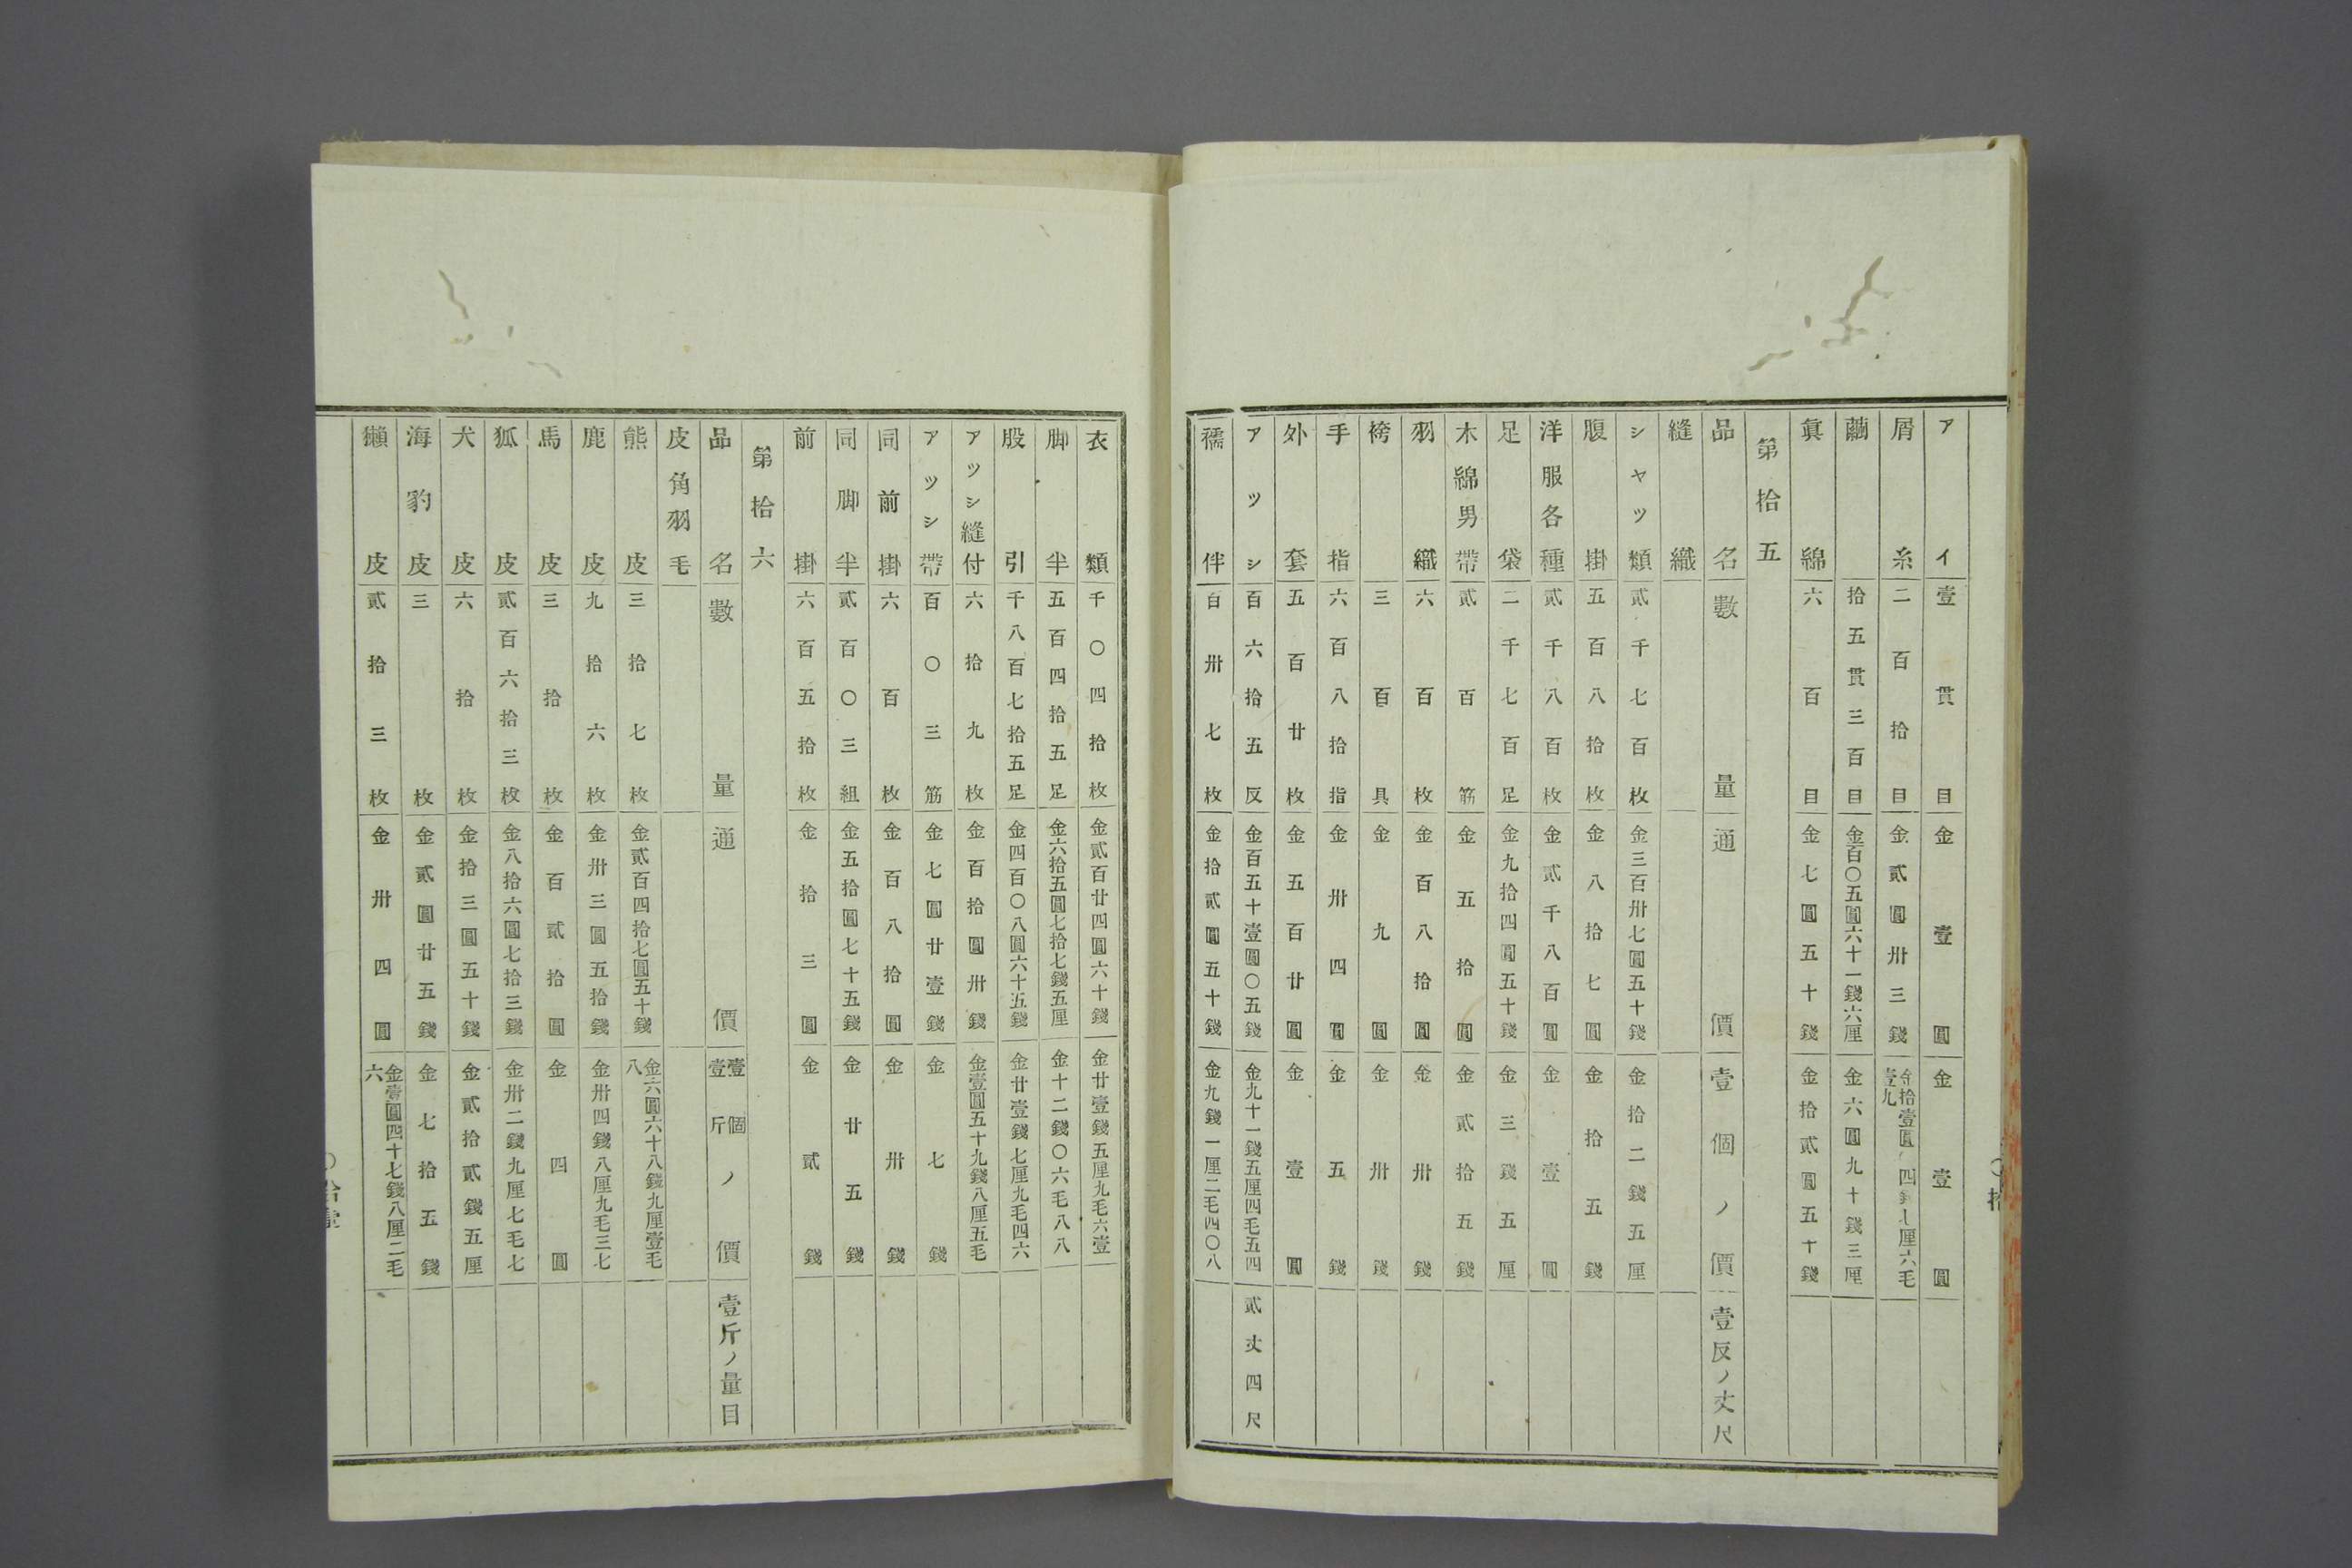 アイ 壹貫目 金壹圓 金壹圓
屑糸 二百拾目 金貳圓卅三錢 金拾壹圓 四錢七厘六毛壹九
繭 拾五貫三百目 金百〇五圓六十一錢六厘 金六圓九十錢三厘
眞綿 六百目 金七圓五十錢 金拾貳圓五十錢
第拾五
品名 數量 通價 壹個ノ價 壹反ノ丈尺
縫織
シヤツ類 貳千七百枚 金三百卅七圓五十錢 金拾二錢五厘
腹掛 五百八拾枚 金八拾七圓 金拾五錢
洋服各種 貳千八百枚 金貳千八百圓 金壹圓
足袋 二千七百足 金九拾四圓五十錢 金三錢五厘
木綿男帶 貳百筋 金五拾圓 金貳拾五錢
羽織 六百枚 金百八拾圓 金卅錢
袴 三百具 金九圓 金卅錢
手指 六百八拾指 金卅四圓 金五錢
外套 五百廿枚 金五百廿圓 金壹圓
アツシ 百六拾五反 金百五十壹圓〇五錢 金九十一錢五厘四毛五四 貳丈四尺
襦伴 百卅七枚 金拾貳圓五十錢 金九錢一厘二毛四〇八
〇拾
衣類 千〇四拾枚 金貳百廿四圓六十錢 金廿壹錢五厘九毛六壹
脚半 五百四拾五足 金六拾五圓七拾七錢五厘 金十二錢〇六毛八八
股引 千八百七拾五足 金四百〇八圓六十五錢 金廿壹錢七厘九毛四六
アツシ縫付 六拾九枚 金百拾圓卅錢 金壹圓五十九錢八厘五毛
アツシ帶 百〇三筋 金七圓廿壹錢 金七錢
同前掛 六百枚 金百八拾圓 金卅錢
同脚半 貳百〇三組 金五拾圓七十五錢 金廿五錢
前掛 六百五拾枚 金拾三圓 金貳錢
第拾六
品名 數量 通價 壹個壹斤ノ價 壹斤ノ量目
皮角羽毛
熊皮 三拾七枚 金貳百四拾七圓五十錢 金六圓六十八錢九厘壹毛八
鹿皮 九拾六枚 金卅三圓五拾錢 金卅四錢八厘九毛三七
馬皮 三拾枚 金百貳拾圓 金四圓
狐皮 貳百六拾三枚 金八拾六圓七拾三錢 金卅二錢九厘七毛七
犬皮 六拾枚 金拾三圓五十錢 金貳拾貳錢五厘
海豹皮 三枚 金貳圓廿五錢 金七拾五錢
獺皮 貳拾三枚 金卅四圓 金壹圓四十七錢八厘二毛六
〇拾壹